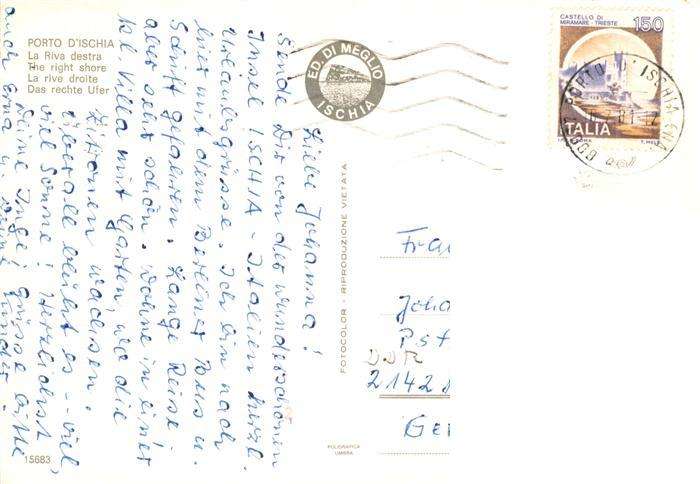 PORTO D'ISCHIA
La Riva destra
The right shore
La rive droite
Das rechte Ufer
ED. DI MEGLIO
ISCHIA
CASTELLO DI
MIRAMARE - TRIESTE
150
ITALIA
T. MELE
PORTO D'ISCHIA
Liebe Johanna!
Sende Dir von der wunderschönen
Insel ISCHIA - Italien herzl.
Urlaubsgrüsse. Ich bin nach
hier mit dem Berliner Bus u.
Schiff gefahren. Lange Reise,
aber sehr schön. Wohne in einer
kl. Villa mit Garten, wo die
Zitronen wachsen.
Überall blüht es -- viel,
viel Sonne! Herzlichst
Deine Inge! Grüsse bitte
auch
FOTOCOLOR - RIPRODUZIONE VIETATA
Frau
Joha
Pst
DDR
2142
Ger
POLIGRAFICA
UMBRA
15683